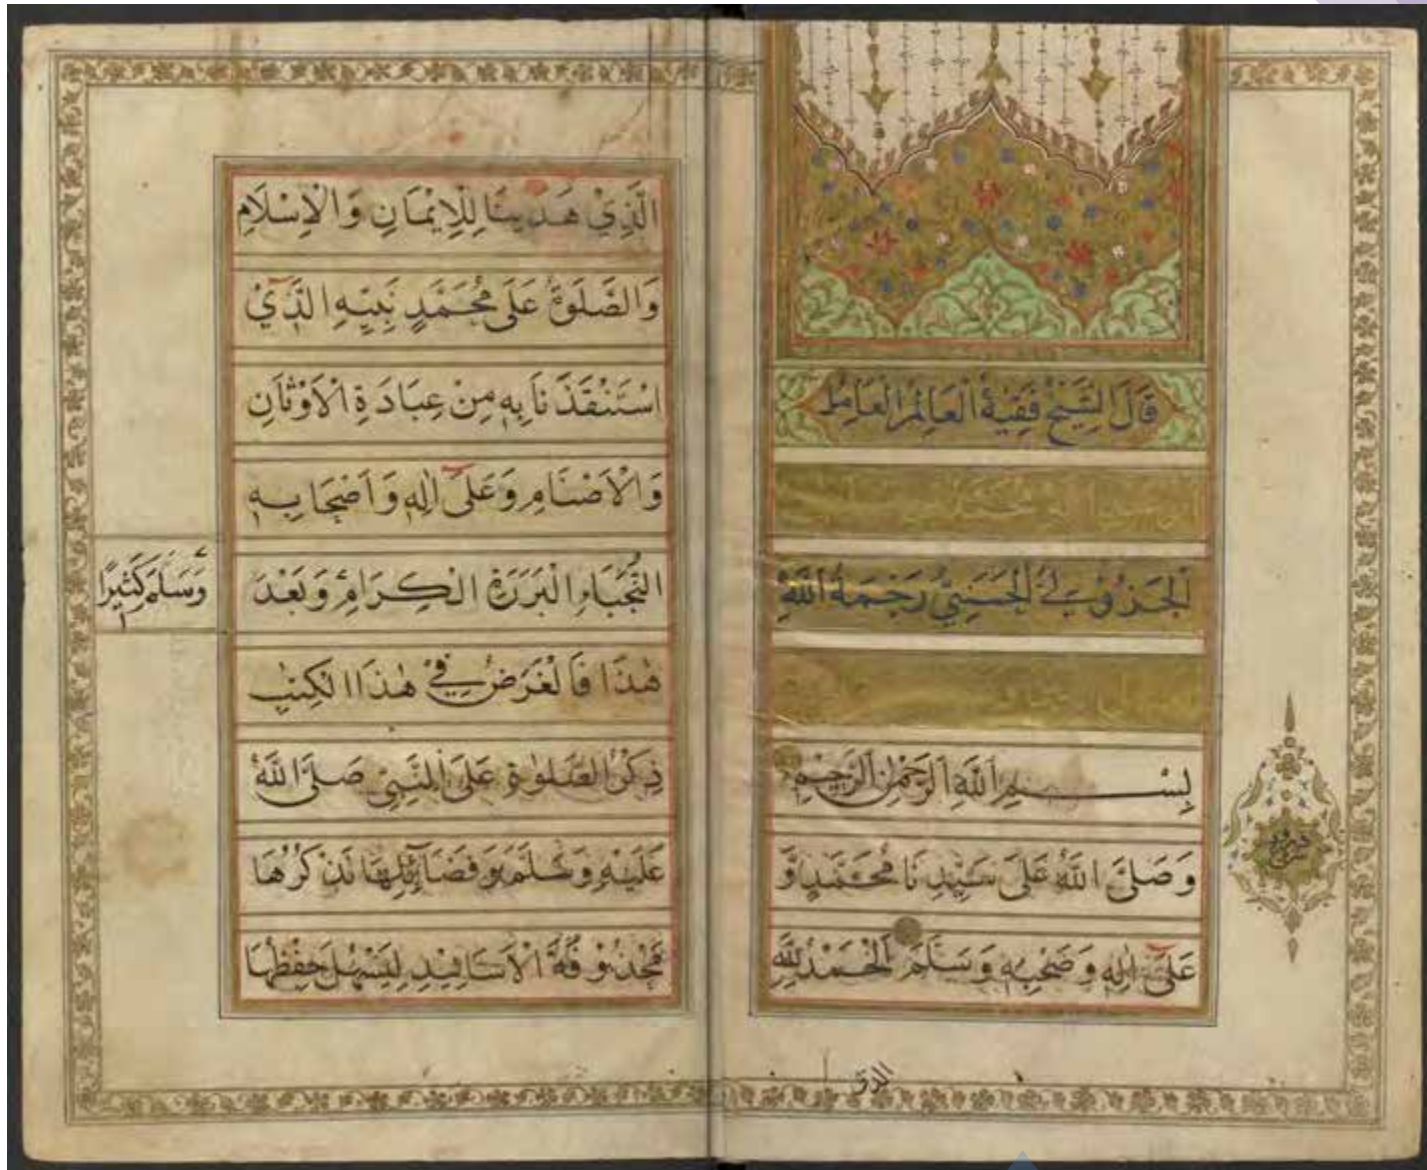 قَالَ الشَّيْخُ فَقِيْهُ الْعَالِمُ الْعَامِلُ
رَحْمَةُ اللّٰهِ
بِسْمِ اللّٰهِ الرَّحْمٰنِ الرَّحِيْمِ
وَصَلَّى اللّٰهُ عَلٰى سَيِّدِنَا مُحَمَّدٍ وَّ
عَلٰٓى اٰلِهٖ وَصَحْبِهٖ وَسَلَّمَ اَلْحَمْدُ لِلّٰهِ
الَّذِيْ هَدٰينَا لِلْاِيْمَانِ وَالْاِسْلَامِ
وَالصَّلٰوةُ عَلٰى مُحَمَّدٍ نَبِيِّهِ الَّذِيْ
اسْتَنْقَذَنَا بِهٖ مِنْ عِبَادَةِ الْاَوْثَانِ
وَالْاَصْنَامِ وَعَلٰٓى اٰلِهٖ وَاَصْحَابِهٖ
النُّجَبَاءِ الْبَرَرَةِ الْكِرَامِ وَبَعْدَ
وَسَلَّمَ كَثِيْرًا
هٰذَا فَالْغَرَضُ فِيْ هٰذَا الْكِتٰبِ
ذِكْرُ الصَّلٰوةِ عَلَى النَّبِيِّ صَلَّى اللّٰهُ
عَلَيْهِ وَسَلَّمَ وَفَضَآئِلِهَا نَذْكُرُهَا
مَحْذُوْفَةَ الْاَسَانِيْدِ لِيَسْهُلَ حِفْظُهَا